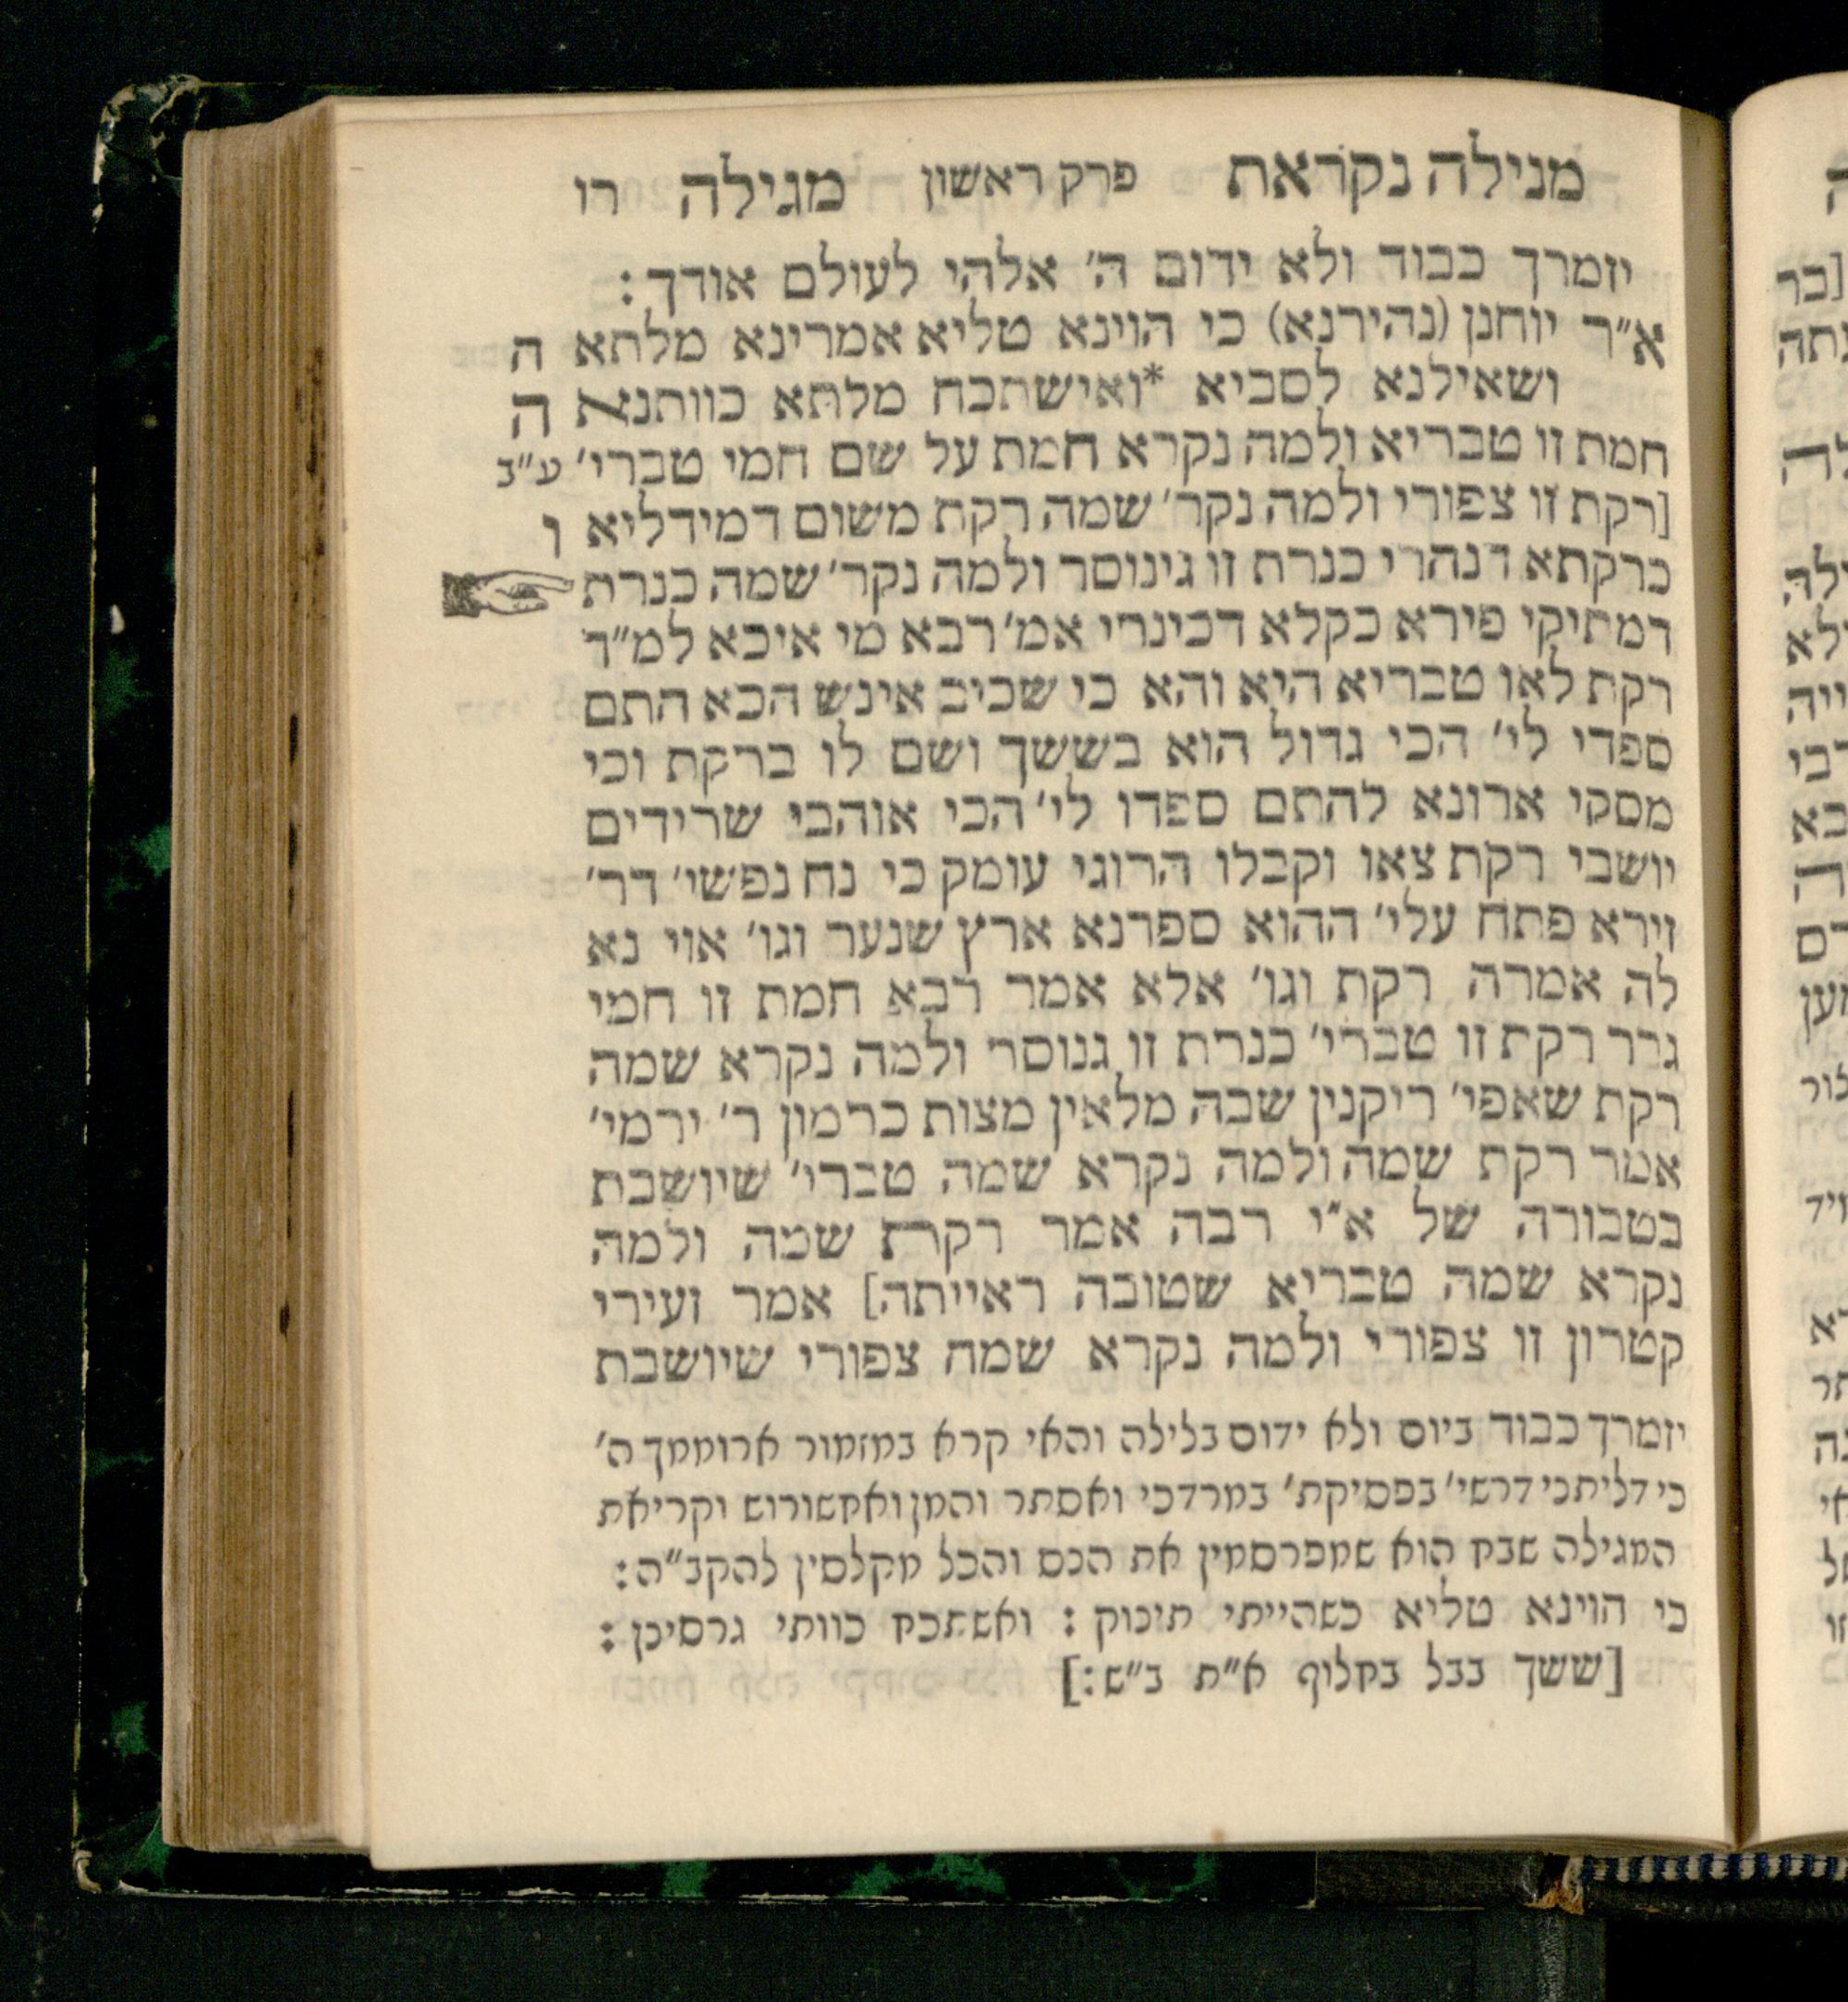 מגילה נקראת פרק ראשון מגילה רו
יזמרך כבוד ולא ידום ה׳ אלהי לעולם אודך:
א״ר יוחנן (נהירנא) כי הוינא טליא אמרינא מלתא ה
ושאילנא לסביא *ואישתכח מלתא כוותנא ה
חמת זו טבריא ולמה נקרא חמת על שם חמי טברי׳ ע״ב
[רקת זו צפורי ולמה נקר׳ שמה רקת משום דמידליא ו
כרקתא דנהרי כנרת זו גינוסר ולמה נקר׳ שמה כנרת
דמתיקי פירא כקלא דכינרי אמ׳ רבא מי איכא למ״ד
רקת לאו טבריא היא והא כי שכיב אינש הכא התם
ספדי לי׳ הכי גדול הוא בששך ושם לו ברקת וכי
מסקי ארונא להתם ספדו לי׳ הכי אוהבי שרידים
יושבי רקת צאו וקבלו הרוגי עומק כי נח נפשי׳ דר׳
זירא פתח עלי׳ ההוא ספרנא ארץ שנער וגו׳ אוי נא
לה אמרה רקת וגו׳ אלא אמר רבא חמת זו חמי
גרר רקת זו טברי׳ כנרת זו גנוסר ולמה נקרא שמה
רקת שאפי׳ ריקנין שבה מלאין מצות כרמון ר׳ ירמי׳
אמר רקת שמה ולמה נקרא שמה טברי׳ שיושבת
בטבורה של א״י רבה אמר רקת שמה ולמה
נקרא שמה טבריא שטובה ראייתה] אמר זעירי
קטרון זו צפורי ולמה נקרא שמה צפורי שיושבת
יזמרך כבוד ביום ולא ידום בלילה והאי קרא במזמור ארוממך ה׳
כי דליתני דרשי׳ בפסיקת׳ במרדכי ואסתר והמן ואחשורוש וקריאת
המגילה שבח הוא שמפרסמין את הנס והכל מקלסין להקב״ה:
כי הוינא טליא כשהייתי תינוק: ואשתכח כוותי גרסינן:
[ששך בבל בחלוף א״ת ב״ש:]